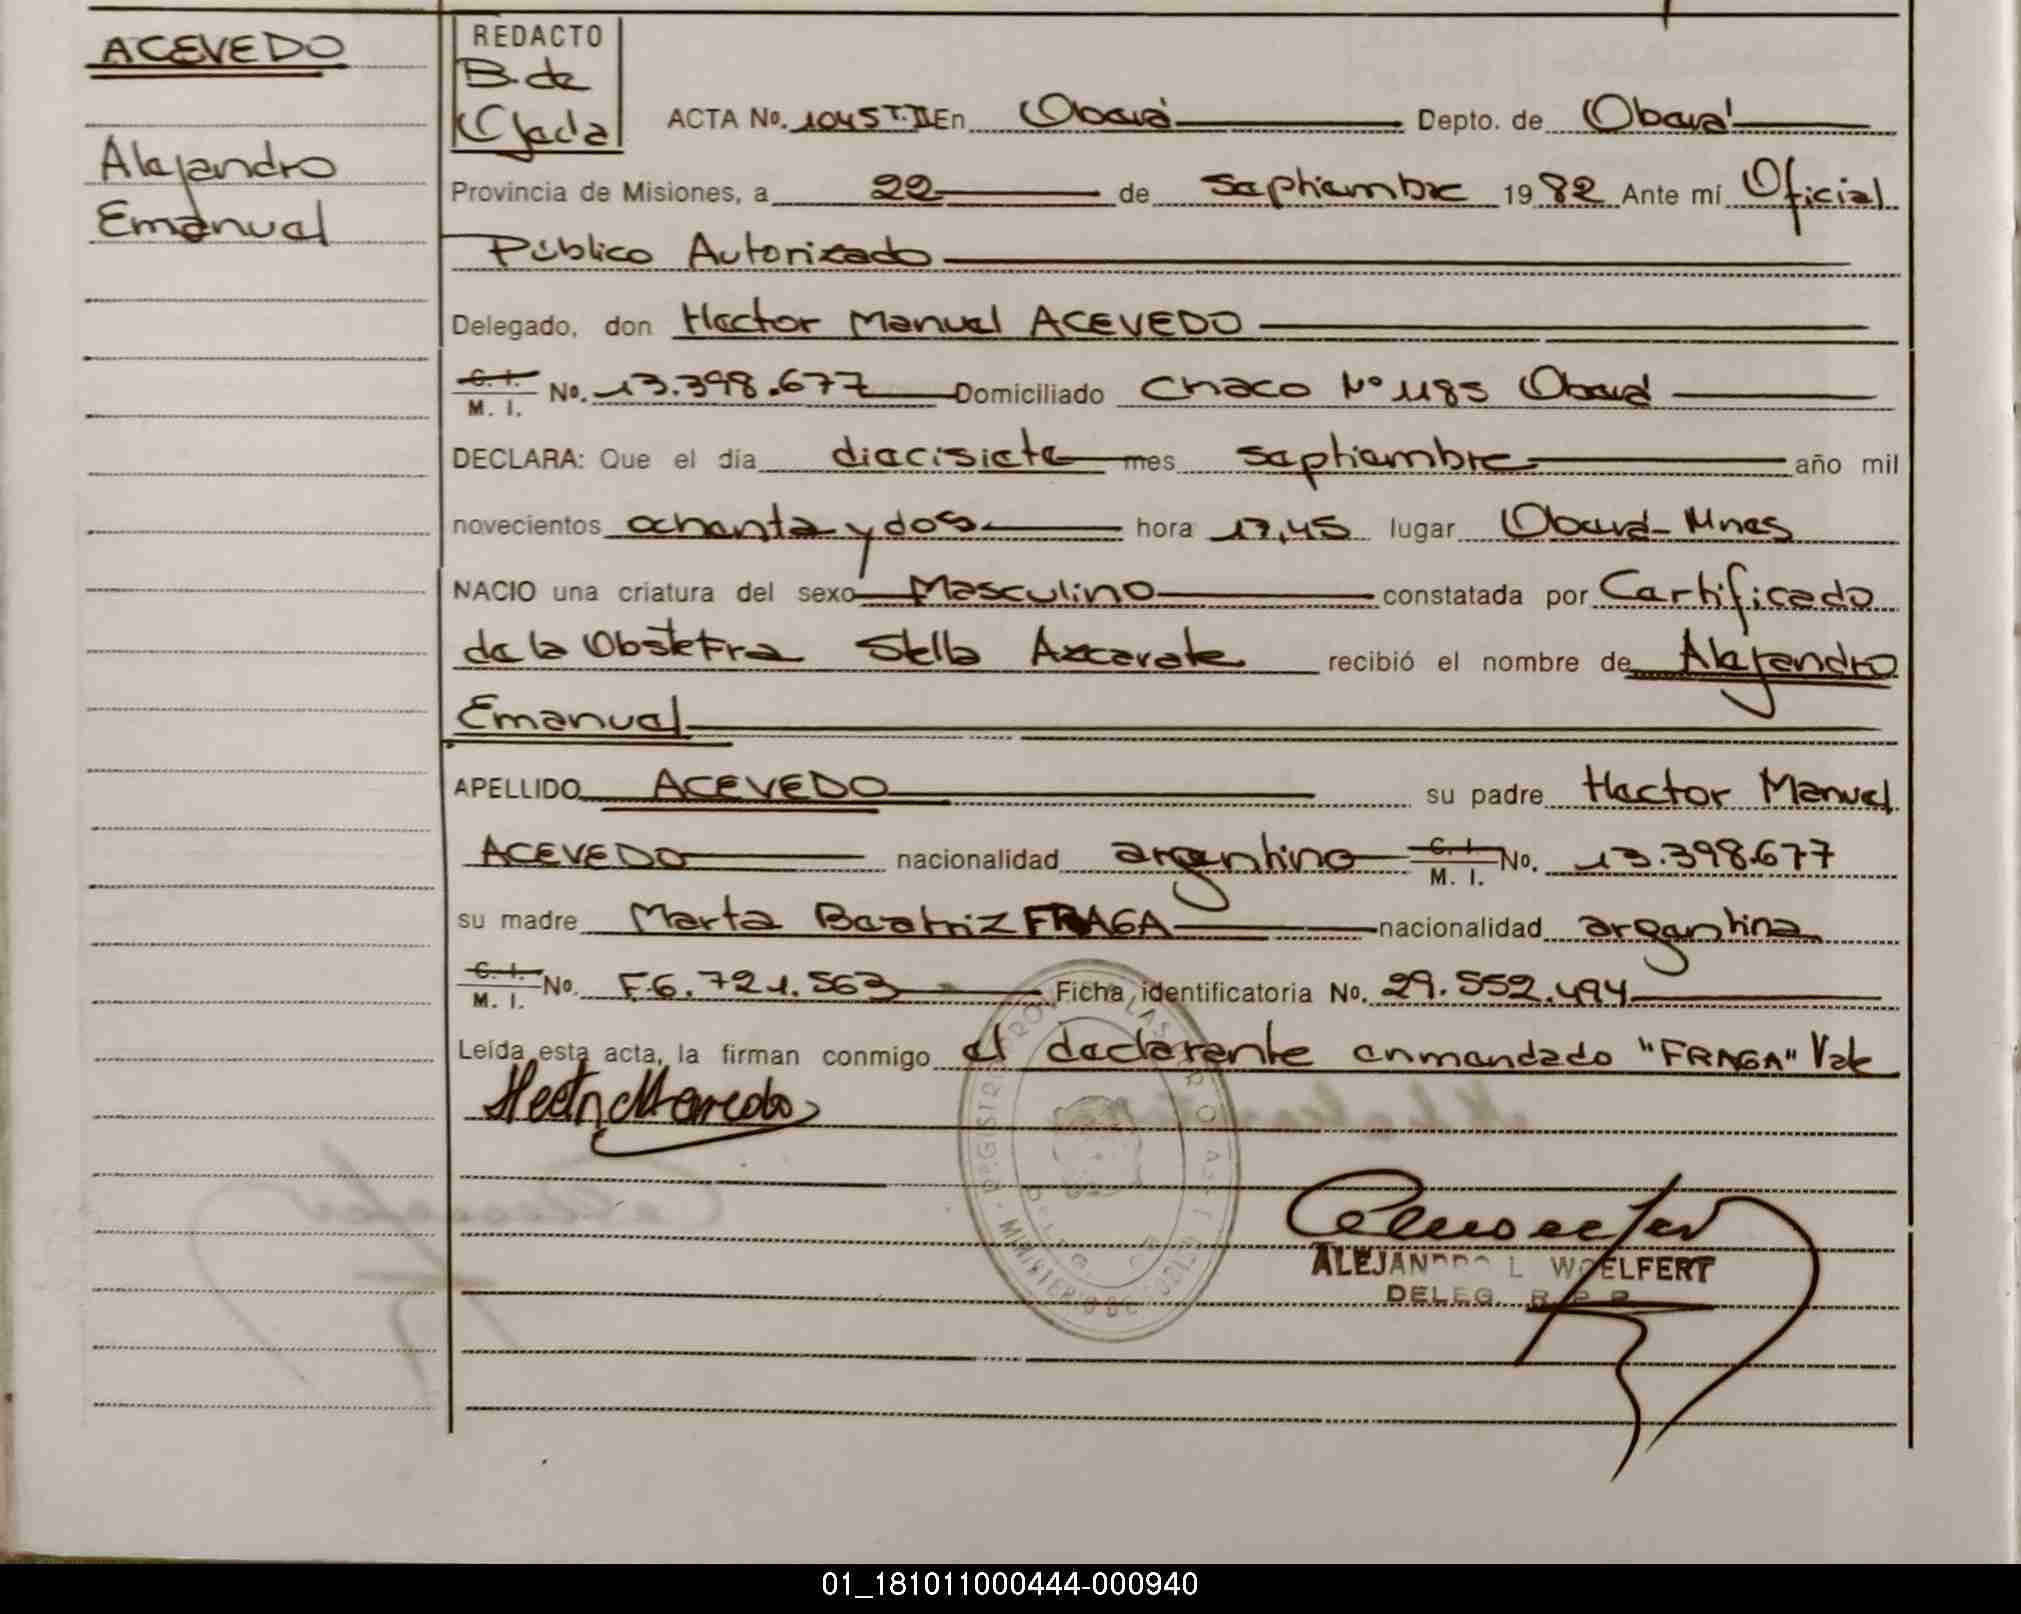 ACEVEDO
Alejandro
Emanuel
REDACTO
B. de
Ojeda
ACTA No. 1045 T.II En Oberá Depto. de Oberá
Provincia de Misiones, a 22 de septiembre 1982 Ante mí Oficial
Público Autorizado
Delegado, don Hector Manuel ACEVEDO
C. I. M. I. No. 13.398.677 Domiciliado Chaco Nº 1185 Oberá
DECLARA: Que el día diecisiete mes septiembre año mil
novecientos ochenta y dos hora 17,45 lugar Oberá- Mnes
NACIO una criatura del sexo Masculino constatada por Certificado
de la Obstetra Stella Azcarate recibió el nombre de Alejandro
Emanuel
APELLIDO ACEVEDO su padre Hector Manuel
ACEVEDO nacionalidad argentino C. I. M. I. No. 13.398.677
su madre Marta Beatriz FRAGA nacionalidad argentina
C. I. M. I. No. F6.721.563 Ficha identificatoria No. 29.552.494
Leída esta acta, la firman conmigo el declarante enmendado "FRAGA" Vale
ALEJANDRO L WOELFERT
DELEG. R.P.P.
01_181011000444-000940